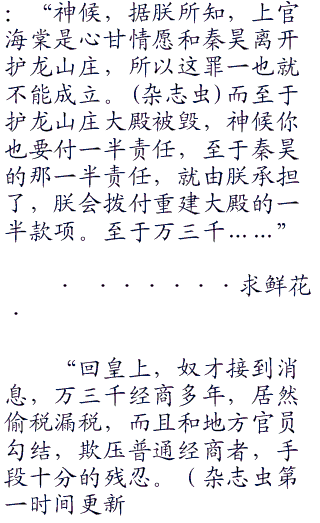 ：“神候，据朕所知，上官
海棠是心甘情愿和秦昊离开
护龙山庄，所以这罪一也就
不能成立。(杂志虫)而至于
护龙山庄大殿被毁，神候你
也要付一半责任，至于秦昊
的那一半责任，就由朕承担
了，朕会拨付重建大殿的一
半款项。至于万三千……”
· · · · · · · 求鲜花
·
“回皇上，奴才接到消
息，万三千经商多年，居然
偷税漏税，而且和地方官员
勾结，欺压普通经商者，手
段十分的残忍。（杂志虫第
一时间更新